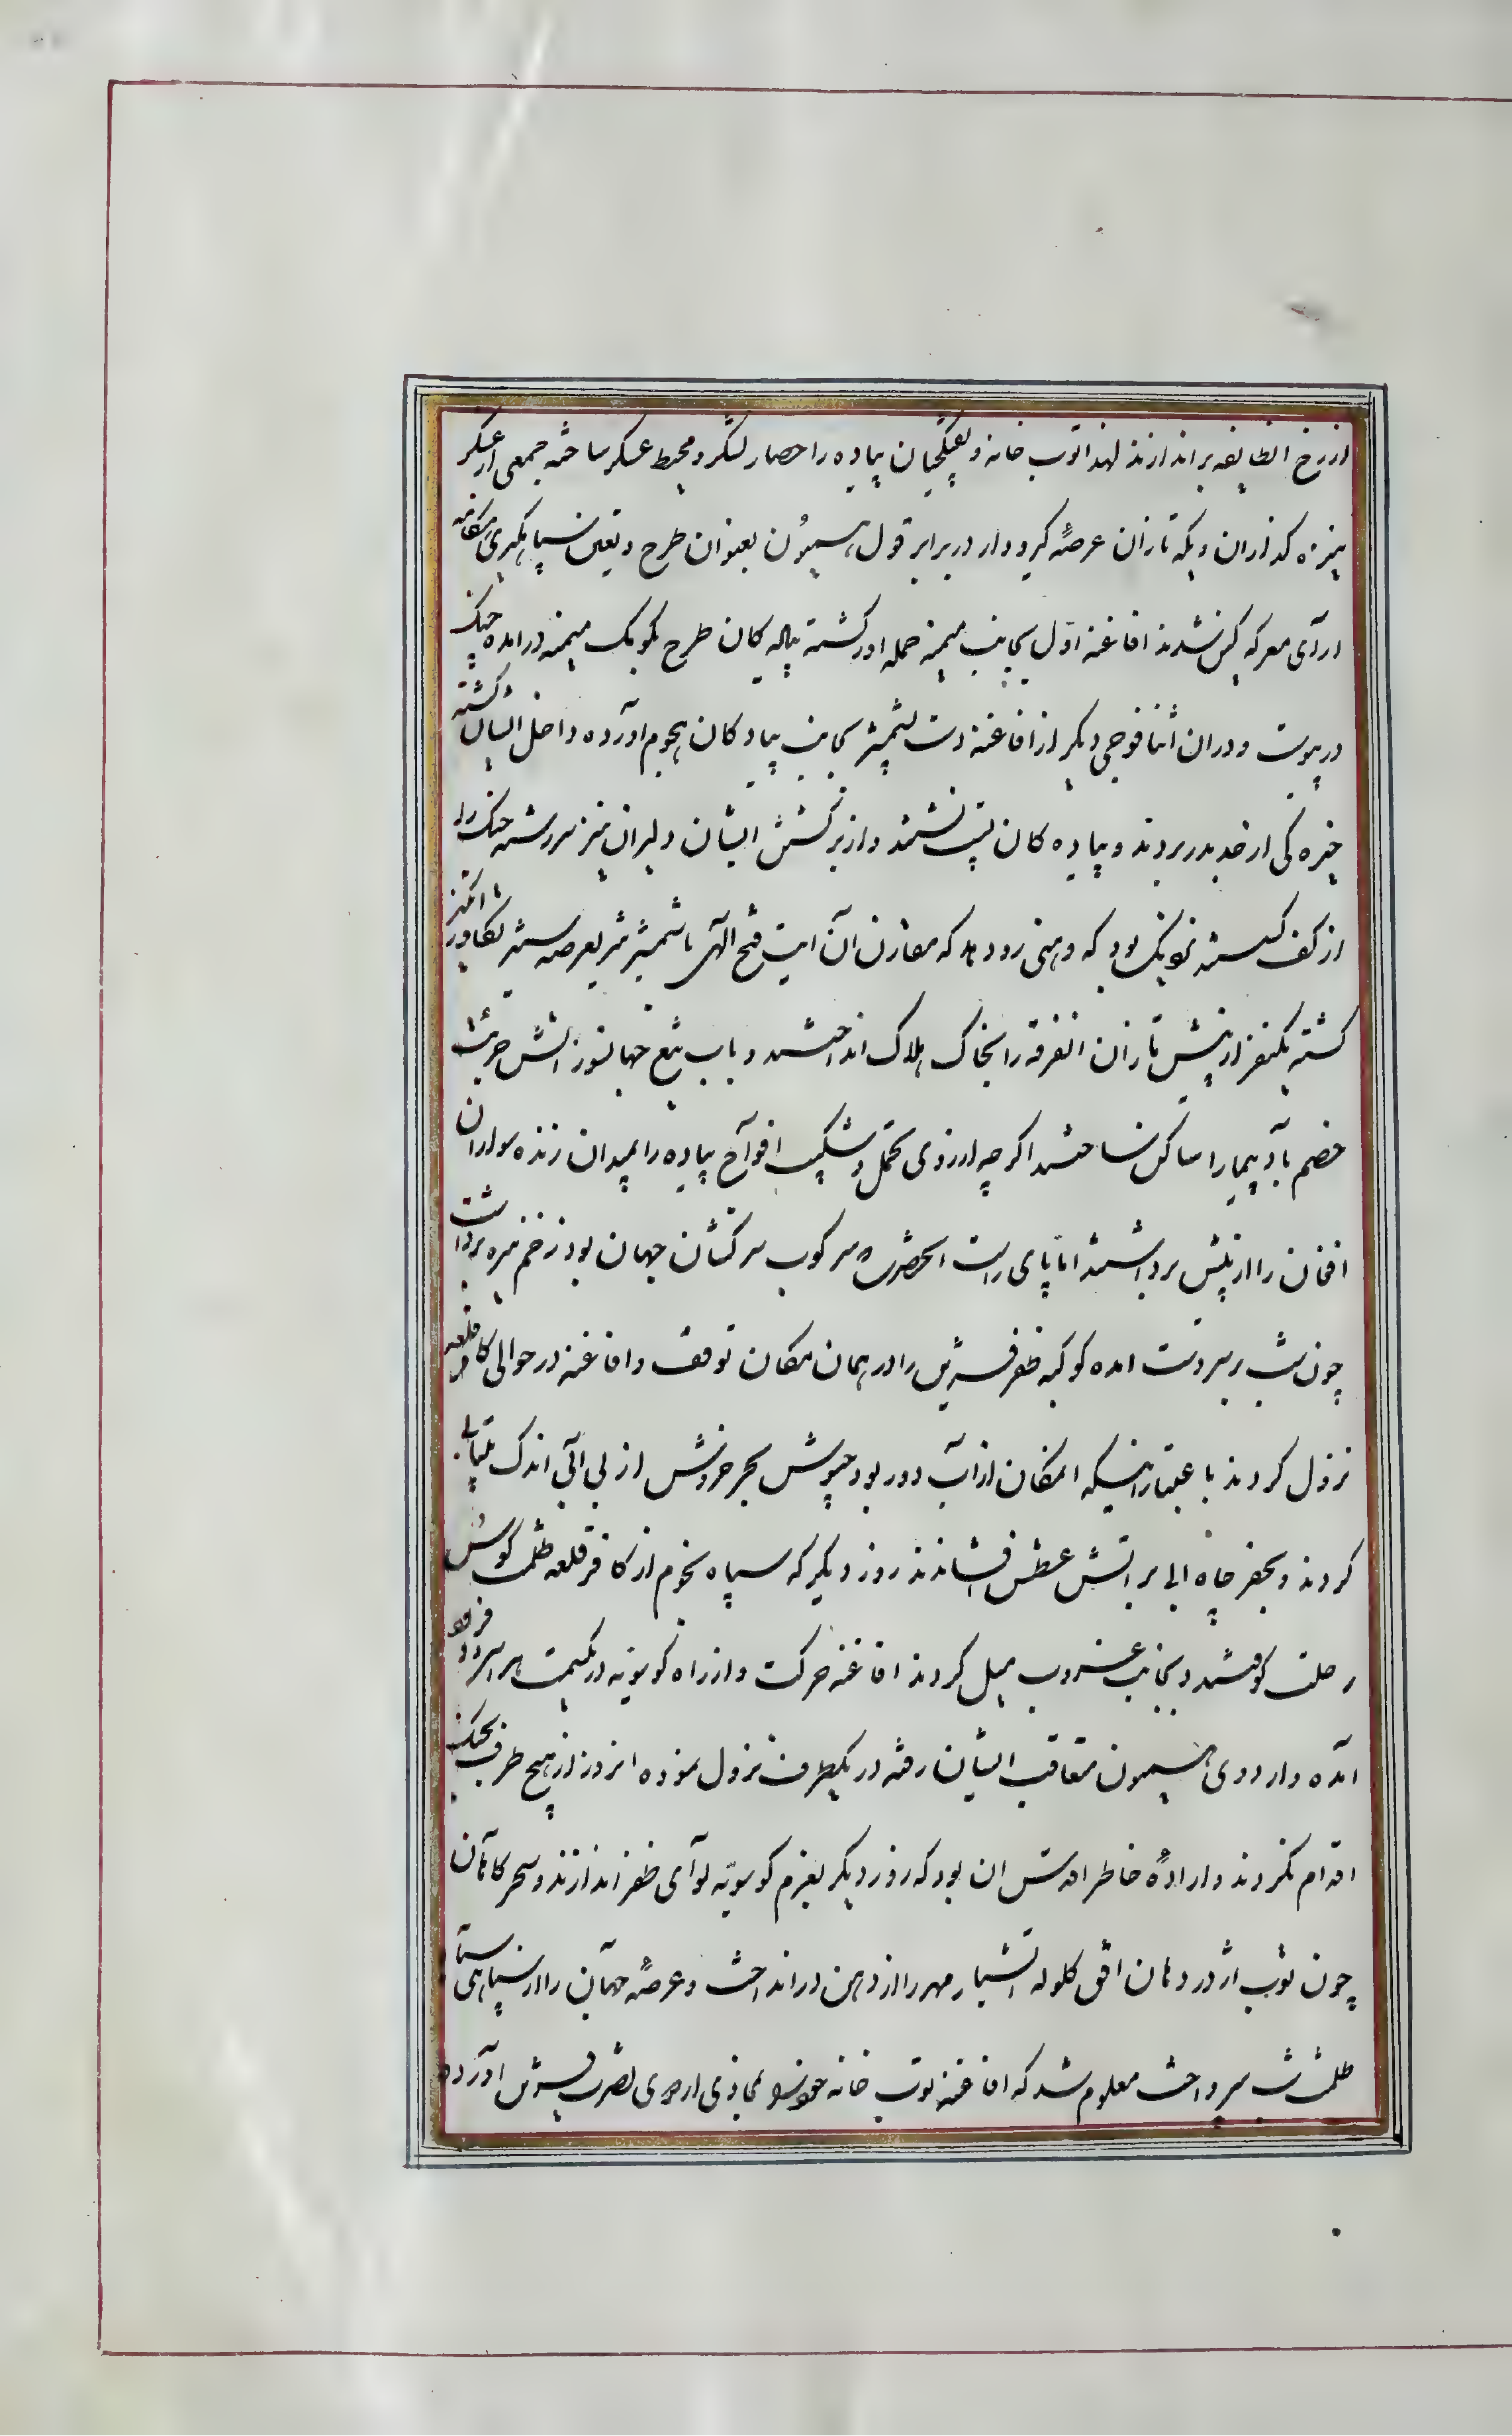 از رخ انطایفه براندازند لهذا توب خانه و تفنکچیان پیاده را حصار لشکر و محیط عسکر ساخته جمعی از عسکر
نیزه کذاران و یکه تازان عرصهٔ کیر و دار در برابر قول همیون بعنوان طرح و تعین سپاهیکری هنکامه
ارآی معرکه کین شدند افاغنه اول بجانب میمنه حمله اور کشته پیاله کان طرح بکومک میمنه درامده جنک
در پیوست و دران اثنا فوجی دیکر از افاغنه دست بشمشیر بجانب پیادکان هجوم اورده داخل ایشان کشته
خیره کی از حد بدر بردند و پیاده کان پشت نشتند و از برکشتن ایشان دلیران نیز سررشته جنک را
از کف کسسته نزدیک بود که وهنی رو دهد که مقارن آن ایت فتح الهی با شمشیر شرر بعرصه ستیز تکاور انکیز
کشته یکنفر از پیش تازان انفرقه را بخاک هلاک انداختند و باب تیغ جهانسوز اتش جرئت
خصم باد پیما را ساکن ساختند اکر چه از روی تحمل و شکیب افواج پیاده را بمیدان زنده سواران
افغان را از پیش برداشتند اما پای راست انحضرت که سرکوب سرکشان جهان بود زخم نیزه برداشت
چون شب بر سر دست امده کوکبه ظفر قرین را در همان مکان توقف و افاغنه در حوالی کافر قلعه
نزول کردند باعتبار اینکه انمکان از اب دور بود جیوش بحر خروش از بی آبی اندک بیتابی
کردند و بحفر چاه ابی بر اتش عطش افشاندند روز دیکر که سپاه نجوم از کافر قلعه ظلمت کوس
رحلت کوفتند و بجانب غروب میل کردند افاغنه حرکت و از راه کوسویه در یکسمت هرات فرود
آمده و اردوی همیون متعاقب ایشان رفته در یکطرف نزول نموده انروز از هیچ طرف بجنک
اقدام نکردند و ارادهٔ خاطر اقدس ان بود که روز دیکر بعزم کوسویه لوای ظفر اندازند و سحرکاهان
چون توب اژدر دهان افق کلوله اتشبار مهر را از دهن در انداخت و عرصهٔ جهان را از سپاهی سپاه
ظلمت شب پرداخت معلوم شد که افاغنه توب خانه خود را بمحاذی اردوی نصرت قرین اورده